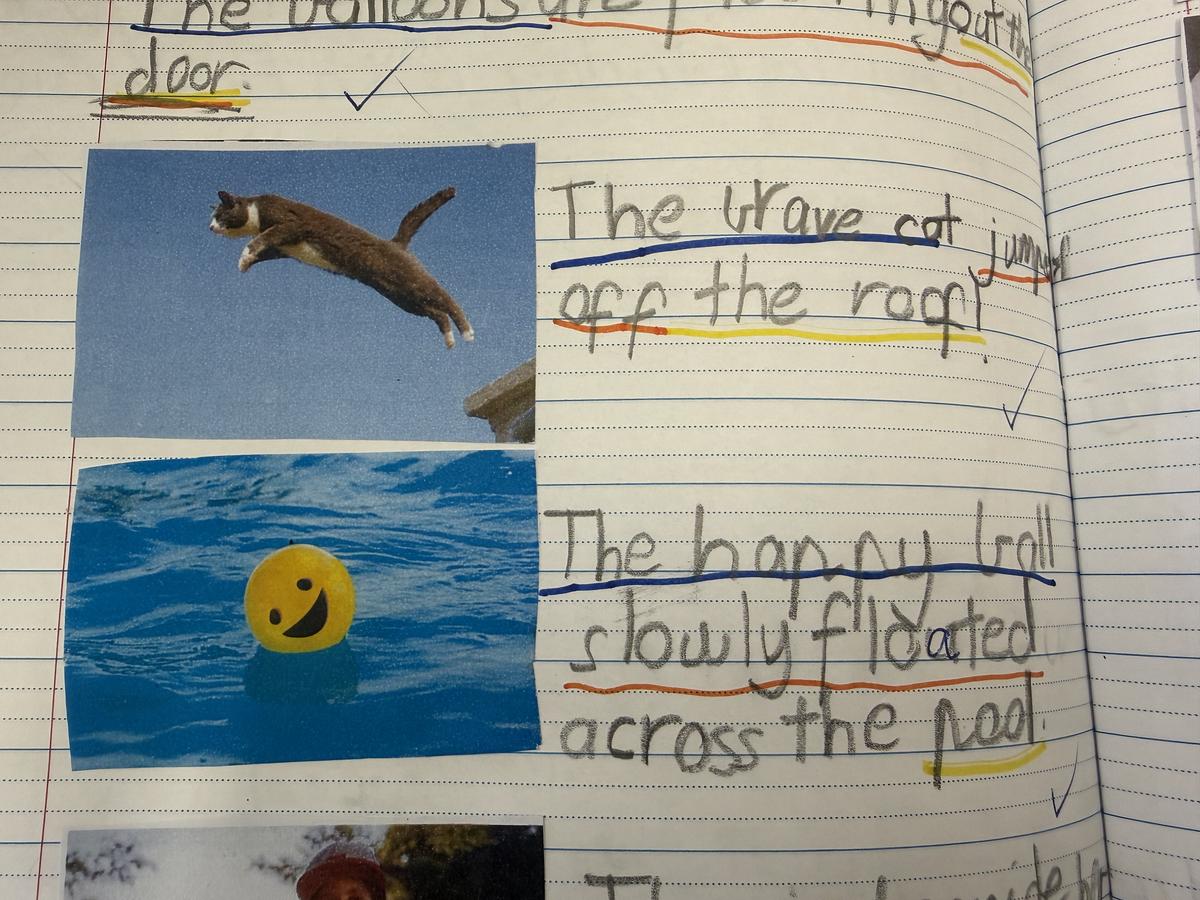 The balloons are floating out the
door.
The brave cat jumped
off the roof!
The happy ball
slowly floated
across the pool.
The